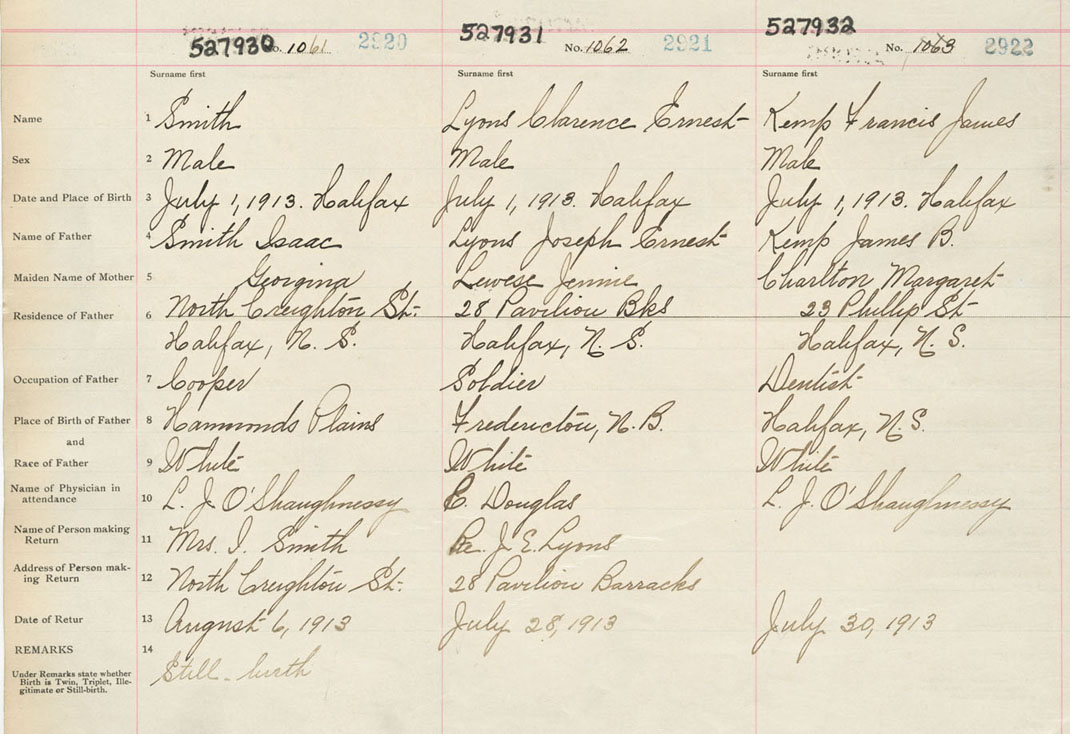 527930 No. 1061 2920 527931 No. 1062 2921 527932 No. 1063 2922
Surname first Surname first Surname first
Name 1 Smith Lyons Clarence Ernest Kemp Francis James
Sex 2 Male Male Male
Date and Place of Birth 3 July 1, 1913. Halifax July 1, 1913. Halifax July 1, 1913. Halifax
Name of Father 4 Smith Isaac Lyons Joseph Ernest Kemp James B.
Maiden Name of Mother 5 Georgina Lewese Jennie Charlton Margaret
Residence of Father 6 North Creighton St. 28 Pavilion Bks 23 Phillip St
Halifax, N. S. Halifax, N. S. Halifax, N. S.
Occupation of Father 7 Cooper Soldier Dentist
Place of Birth of Father 8 Hammonds Plains Fredericton, N. B. Halifax, N. S.
and
Race of Father 9 White White White
Name of Physician in
attendance 10 L. J. O'Shaughnessy C. Douglas L. J. O'Shaughnessy
Name of Person making
Return 11 Mrs. I. Smith J. E. Lyons
Address of Person mak-
ing Return 12 North Creighton St. 28 Pavilion Barracks
Date of Retur 13 August 6, 1913 July 28, 1913 July 30, 1913
REMARKS 14
Still-birth
Under Remarks state whether
Birth is Twin, Triplet, Ille-
gitimate or Still-birth.